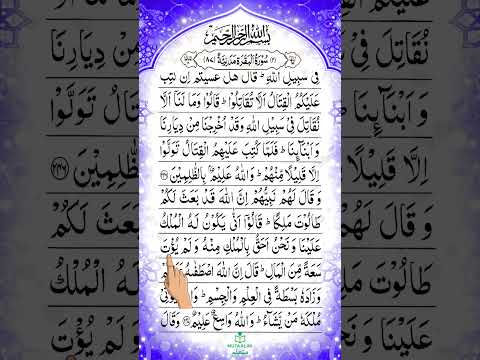 بِسْمِ اللهِ الرَّحْمٰنِ الرَّحِيْمِ
(٢) سُوْرَةُ الْبَقَرَةِ مَدَنِيَّةٌ (٨٧)
فِیْ سَبِیْلِ اللّٰهِ ؕ قَالَ هَلْ عَسَیْتُمْ اِنْ كُتِبَ
عَلَیْكُمُ الْقِتَالُ اَلَّا تُقَاتِلُوْا ؕ قَالُوْا وَمَا لَنَاۤ اَلَّا
نُقَاتِلَ فِیْ سَبِیْلِ اللّٰهِ وَقَدْ اُخْرِجْنَا مِنْ دِیَارِنَا
وَاَبْنَآىِٕنَا ؕ فَلَمَّا كُتِبَ عَلَیْهِمُ الْقِتَالُ تَوَلَّوْا
اِلَّا قَلِیْلًا مِّنْهُمْ ؕ وَاللّٰهُ عَلِیْمٌۢ بِالظّٰلِمِیْنَ ﴿۲۴۶﴾
وَقَالَ لَهُمْ نَبِیُّهُمْ اِنَّ اللّٰهَ قَدْ بَعَثَ لَكُمْ
طَالُوْتَ مَلِكًا ؕ قَالُوْۤا اَنّٰی یَكُوْنُ لَهُ الْمُلْكُ
عَلَیْنَا وَنَحْنُ اَحَقُّ بِالْمُلْكِ مِنْهُ وَلَمْ یُؤْتَ
سَعَةً مِّنَ الْمَالِ ؕ قَالَ اِنَّ اللّٰهَ اصْطَفٰىهُ
وَزَادَهٗ بَسْطَةً فِی الْعِلْمِ وَالْجِسْمِ ؕ وَاللّٰهُ یُؤْتِیْ
مُلْكَهٗ مَنْ یَّشَآءُ ؕ وَاللّٰهُ وَاسِعٌ عَلِیْمٌ ﴿۲۴۷﴾ وَقَالَ